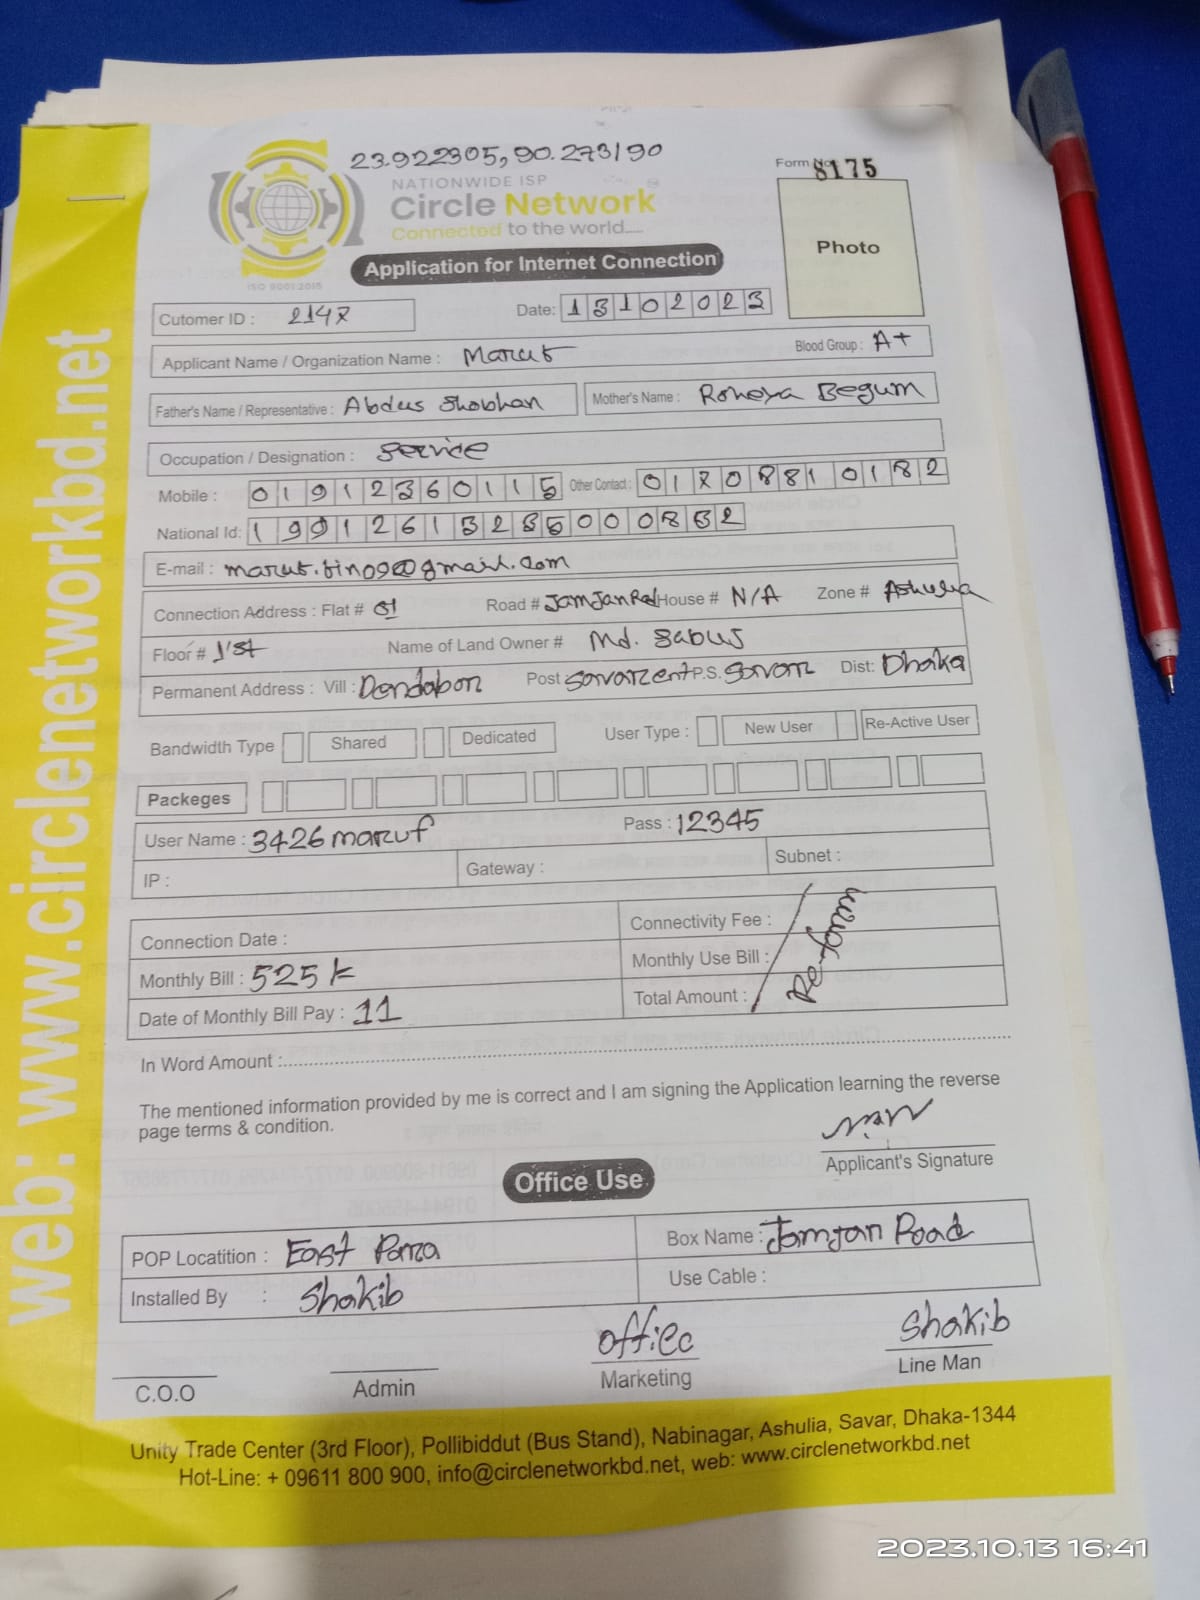 23.922305, 90.273190
Form No. 8175
NATIONWIDE ISP
Circle Network
Connected to the world.....
ISO 9001:2015
Photo
Application for Internet Connection
Cutomer ID : 2147 Date: 13102023
Applicant Name / Organization Name : Maruf Blood Group : A+
Father's Name / Representative : Abdus Shobhan Mother's Name : Begum
Occupation / Designation : Service
Mobile : 01912360115 Other Contact : 01708810182
National Id:
E-mail : maruf.fin09@gmail.com
Connection Address : Flat # Road # JamJanRod House # N/A Zone # Ashulia
Floor # 1'st Name of Land Owner # Md. Sabus
Permanent Address : Vill : Dendabor Post P.S. Savar Dist: Dhaka
Bandwidth Type Shared Dedicated User Type : New User Re-Active User
Packeges
User Name : 3426maruf Pass : 12345
IP : Gateway : Subnet :
Connection Date : Connectivity Fee :
Monthly Bill : 525/- Monthly Use Bill :
Date of Monthly Bill Pay : 11 Total Amount :
Re-form
In Word Amount :
The mentioned information provided by me is correct and I am signing the Application learning the reverse
page terms & condition.
Applicant's Signature
Office Use
POP Locatition : East Para Box Name : Jamjan Road
Installed By : Shakib Use Cable :
C.O.O
Admin
offiec
Marketing
Shakib
Line Man
Unity Trade Center (3rd Floor), Pollibiddut (Bus Stand), Nabinagar, Ashulia, Savar, Dhaka-1344
Hot-Line: + 09611 800 900, info@circlenetworkbd.net, web: www.circlenetworkbd.net
web: www.circlenetworkbd.net
2023.10.13 16:41